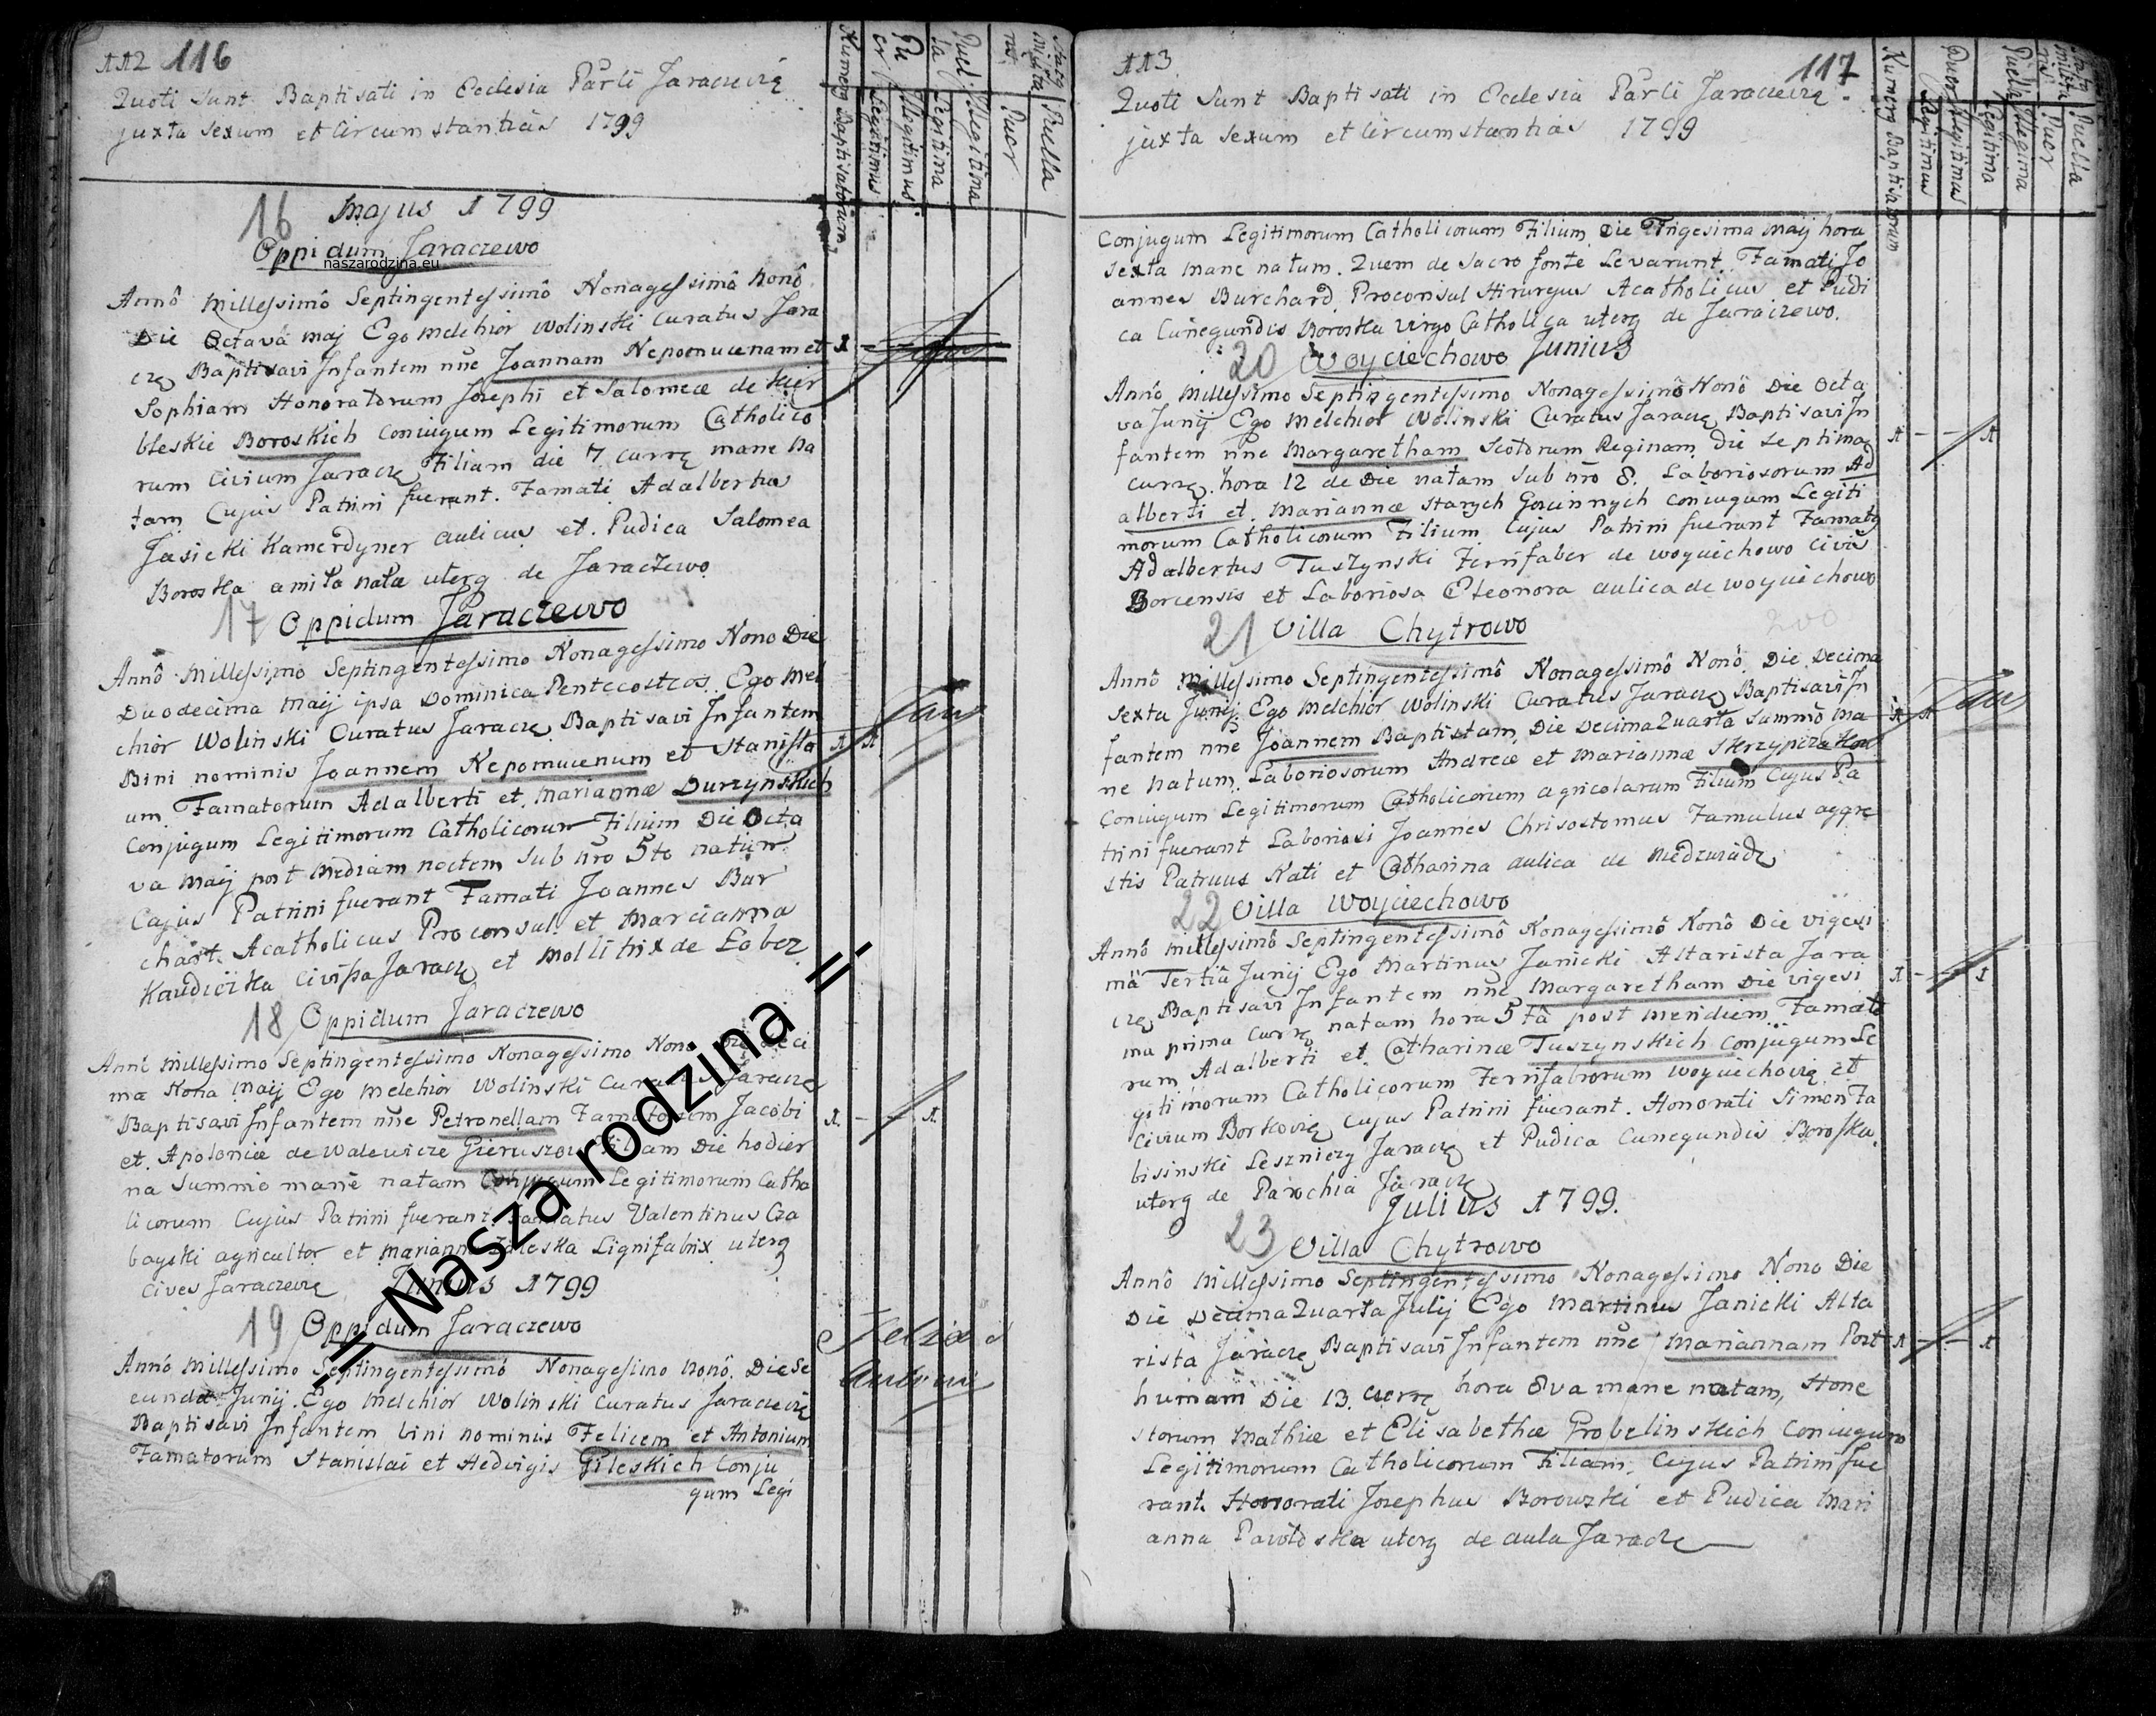 112 116
Quoti sunt Baptisati in Ecclesia Parli Jaraczewię
juxta sexum et Circumstantias 1799
Numerg Baptisatorum
Puer
Legitimus
Illegitimus
Puella
Legitima
Illegitima
Puer
Puella
16 Majus 1799
Oppidum Jaraczewo
naszarodzina.eu
Annô Millessimô Septingentessimô Nonagessimô Nonô
Die Octavâ Maj Ego Melchior Wolinski Curatus Jara
czę Baptisavi Infantem nne Joannam Nepomucenam et 1
Sophiam Honoratorum Josephi et Salomeæ de Kier
bleskie Boroskich Coniugum Legitimorum Catholico
rum Civium Jaraczę Filiam die 7 currę mane na
tam Cujus Patrini fuerunt. Famati Adalbertus
Jasicki Kamerdyner aulicus et Pudica Salomea
Boroska amita nata uterq de Jaraczewo
17 Oppidum Jaraczewo
Annô Millessimo Septingentessimo Nonagessimo Nono Die
Duodecima Maij ipsa Dominica Pentecostes. Ego Mel
chior Wolinski Curatus Jaraczę Baptisavi Infantem
Bini nominis Joannem Nepomucenum et Stanisla 1 1
um Famatorum Adalberti et Mariannæ Durzynskich
Conjugum Legitimorum Catholicorum Filium Die Octa
va Maij post Mediam noctem Sub nro 5to natum
Cujus Patrini fuerunt Famati Joannes Bur
chart Acatholicus Proconsul et Marcianna
Civissa Jaraczę et Mollitrix de Lobez
18 Oppidum Jaraczewo
Anno Millessimo Septingentessimo Nonagessimo Nono Die Deci
ma Nona Maij Ego Melchior Wolinski Curatus Jaraczę
Baptisavi Infantem nne Petronellam Famatorum Jacobi 1. 1.
et Apoloniæ de Walewicze Filiam Die hodier
na Summo mane natam Conjugum Legitimorum Catho
licorum Cujus Patrini fuerunt. Famatus Valentinus Cza
bayski agricultor et Marianna Lignifabrix uterq
Cives Jaraczewię Junius 1799
19 Oppidum Jaraczewo
Annô Millessimo Septingentessimô Nonagesimo Nonô. Die Se
cunda Junij. Ego Melchior Wolinski Curatus Jaraczewię
Baptisavi Infantem bini nominis Felicem et Antonium
Famatorum Stanislai et Hedvigis Gileskich Conju
gum Legi
= Nasza rodzina =
113 117
Quoti Sunt Baptisati in Ecclesia Parli Jaraczewię.
juxta Sexum et Circumstantias 1799
Numerg Baptisatorum
Puer
Legitimus
Puella
Legitima
Puer
Puella
Conjugum Legitimorum Catholicorum Filium Die Trigesima Maij hora
Sexta mane natum. Quem de Sacro fonte Levarunt Famati Jo
annes Burchard Proconsul Hirurgus Acatholicus et Pudi
ca Cunegundis Boroska Virgo Catholica uterq de Jaraczewo.
20 Woyciechowo Junius
Annô Millessimo Septingentessimo Nonagessimô Nonô Die Octa
va Junij Ego Melchior Wolinski Curatus Jaraczę Baptisavi In
fantem nne Margaretham Scotorum Reginam Die Septima 1 1
currę. hora 12 de Die natam Sub nro 8. Laboriosorum Ad
alberti et Mariannæ Starych Goscinnych Coniugum Legiti
morum Catholicorum Filium Cujus Patrini fuerunt Famatg
Adalbertus Tuszynski Ferrifaber de Woyciechowo Civis
Borcensis et Laboriosa Eleonora aulica de Woyciechowo
21 Villa Chytrowo 200
Annô Millessimo Septingentessimô Nonagessimô Nonô Die Decima
Sexta Junij Ego Melchior Wolinski Curatus Jaraczę Baptisavi In
fantem nne Joannem Baptistam Die Decima Quarta Summô Ma 1 1
ne natum. Laboriosorum Andreæ et Mariannæ
Coniugum Legitimorum Catholicorum agricolarum Filium Cujus Pa
trini fuerunt Laboriosi Joannes Chrisostomus Famulus aggre
stis Patruus Nati et Catharina aulica de
22 Villa Woyciechowo
Annô Millessimô Septingentessimô Nonagessimô Nonô Die Vigesi
mâ Tertiâ Junij Ego Martinus Janicki Altarista Jara
czę Baptisavi Infantem nne Margaretham Die Vigesi 1 1
ma prima currę natam hora 5tâ post Meridiem Famato
rum Adalberti et Catharinæ Tuszynskich Conjugum Le
gitimorum Catholicorum Ferrifabrorum Woyciechowię et
Civium Borkowię Cujus Patrini fuerunt. Honorati Simon Ta
bisinski Leszniczy Jaraczę et Pudica Cunegundis Boroska
uterq de Parochia Jaracz
Julius 1799.
23 Villa Chytrowo
Annô Millessimo Septingentessimo Nonagessimo Nono Die
Die Decima Quarta Julij Ego Martinus Janicki Alta
rista Jaraczę Baptisavi Infantem nne Mariannam Post 1 1
humam Die 13. currę hora 8va mane natam, Hone
storum Mathiæ et Elisabethæ Grobelinskich Coniugum
Legitimorum Catholicorum Filiam. Cujus Patrini fue
runt Honorati Josephus Borowzki et Pudica Mari
anna uterq de aula Jaracz